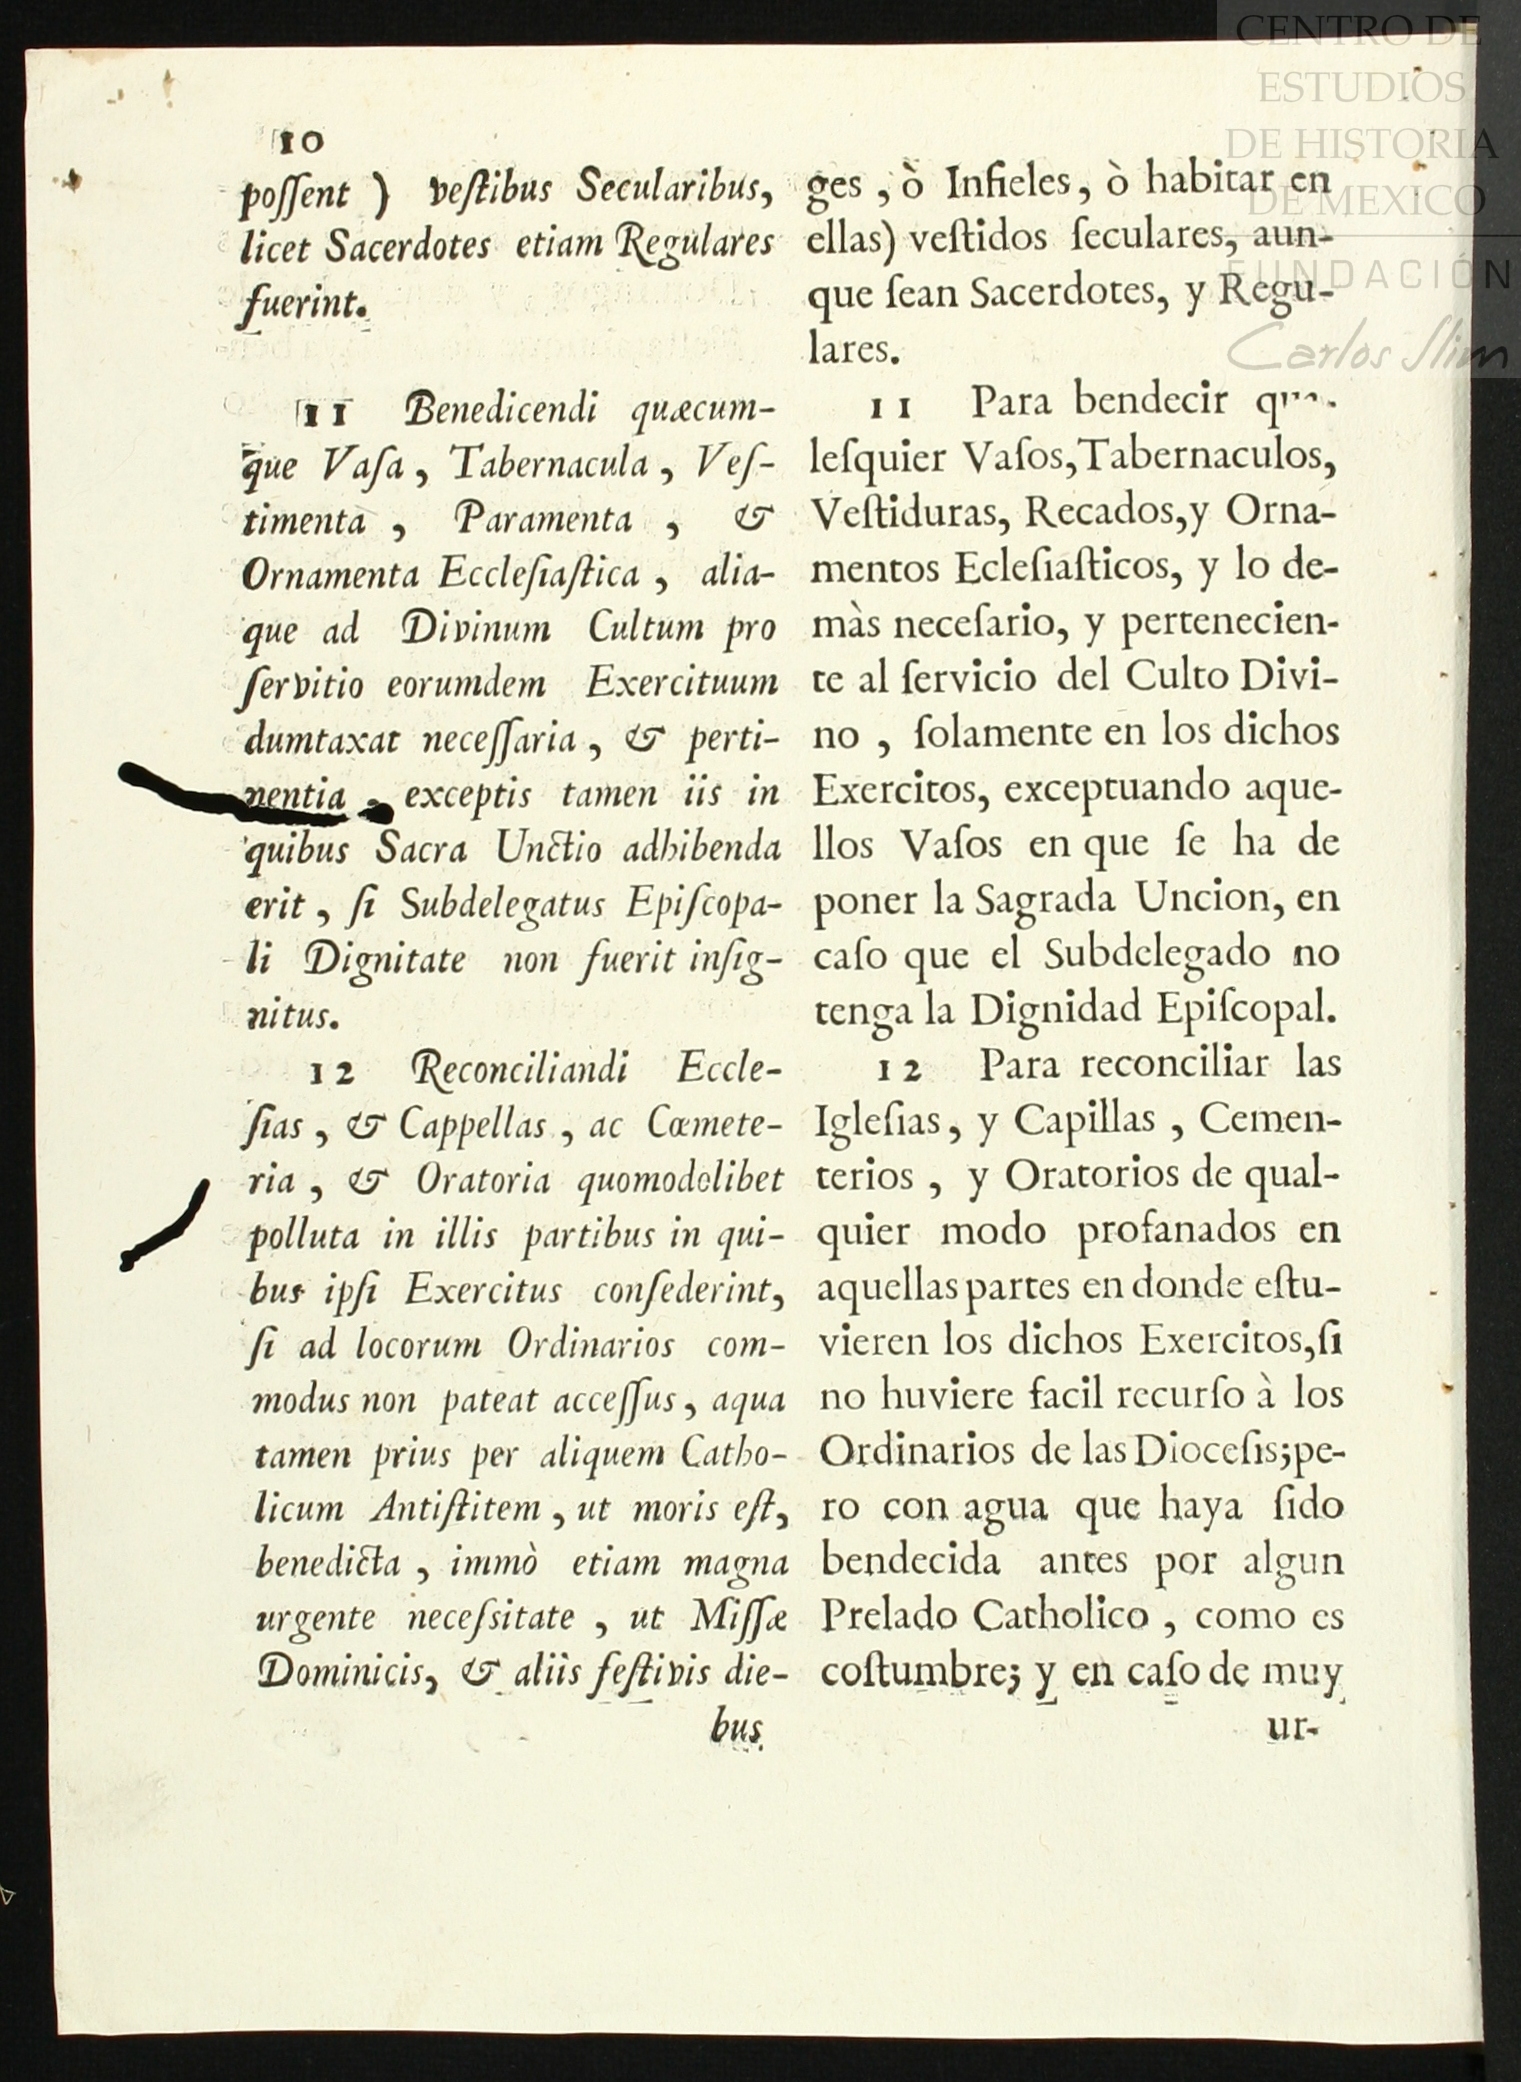 10
poſſent ) veſtibus Secularibus,
licet Sacerdotes etiam Regulares
fuerint.
11 Benedicendi quæcum-
que Vaſa, Tabernacula, Veſ-
timenta, Paramenta, &
Ornamenta Eccleſiaſtica, alia-
que ad Divinum Cultum pro
ſervitio eorumdem Exercituum
dumtaxat neceſſaria, & perti-
nentia, exceptis tamen iis in
quibus Sacra Unctio adhibenda
erit, ſi Subdelegatus Epiſcopa-
li Dignitate non fuerit inſig-
nitus.
12 Reconciliandi Eccle-
ſias, & Cappellas, ac Cœmete-
ria, & Oratoria quomodolibet
polluta in illis partibus in qui-
bus ipſi Exercitus conſederint,
ſi ad locorum Ordinarios com-
modus non pateat acceſſus, aqua
tamen prius per aliquem Catho-
licum Antiſtitem, ut moris eſt,
benedicta, immò etiam magna
urgente neceſsitate, ut Miſſæ
Dominicis, & aliis feſtivis die-
bus
ges, ò Infieles, ò habitar en
ellas) veſtidos ſeculares, aun-
que ſean Sacerdotes, y Regu-
lares.
11 Para bendecir
leſquier Vaſos, Tabernaculos,
Veſtiduras, Recados, y Orna-
mentos Ecleſiaſticos, y lo de-
màs neceſario, y pertenecien-
te al ſervicio del Culto Divi-
no, ſolamente en los dichos
Exercitos, exceptuando aque-
llos Vaſos en que ſe ha de
poner la Sagrada Uncion, en
caſo que el Subdelegado no
tenga la Dignidad Epiſcopal.
12 Para reconciliar las
Igleſias, y Capillas, Cemen-
terios, y Oratorios de qual-
quier modo profanados en
aquellas partes en donde eſtu-
vieren los dichos Exercitos, ſi
no huviere facil recurſo à los
Ordinarios de las Dioceſis; pe-
ro con agua que haya ſido
bendecida antes por algun
Prelado Catholico, como es
coſtumbre; y en caſo de muy
ur-
CENTRO DE
ESTUDIOS
DE HISTORIA
DE MEXICO
FUNDACIÓN
Carlos Slim